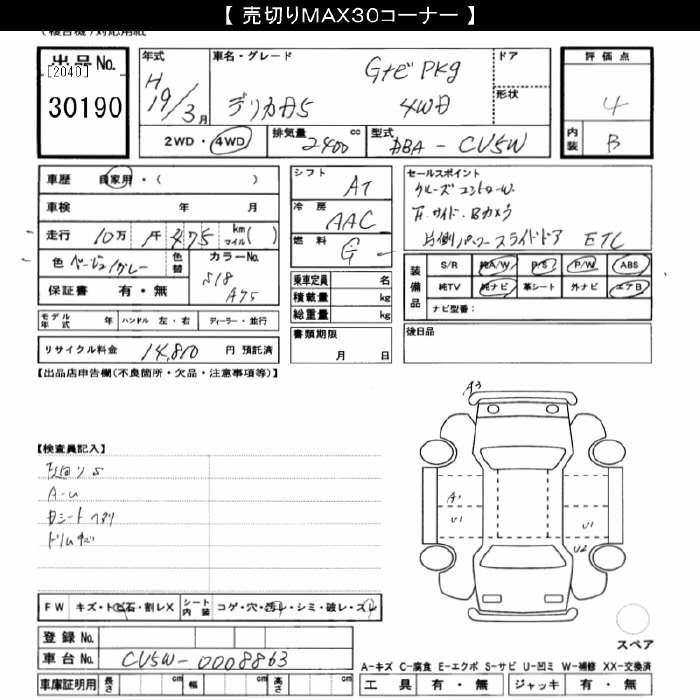 【 売切りMAX30コーナー 】
出品No.
[2040]
30190
年式 車名・グレード ドア 評価点
H GナビPKg
19/3月 デリカD5 4WD 形状 4
2WD・4WD 排気量 2400 cc 型式 DBA-CV5W 内装 B
車歴 自家用・( )
車検 年 月
走行 10万 千 475 km マイル( )
色 ベージュ/グレー 色替 カラーNo. S18 A75
保証書 有・無
モデル年式 年 ハンドル 左・右 ディーラー・並行
リサイクル料金 14,810 円 預託済
シフト AT
冷房 AAC
燃料 G
乗車定員 名
積載量 kg
総重量 kg
書類期限
月 日
セールスポイント
クルーズコントロール
サイド・Bカメラ
片側パワースライドドア ETC
装備品 S/R 純A/W P/S P/W ABS
純TV 純ナビ 革シート 外ナビ エアB
ナビ型番:
後日品
【出品店申告欄(不良箇所・欠品・注意事項等)】
【検査員記入】
A-U
Dシート
A3
A1
U1 U1
U2
FW キズ・トビ石・割レX シート内装 コゲ・穴・汚レ・シミ・破レ・スレ
登録No.
車台No. CV5W-0008863
車庫証明用 長さ cm 幅 cm 高さ cm
スペア
A-キズ C-腐食 E-エクボ S-サビ U-凹ミ W-補修 XX-交換済
工具 有・無 ジャッキ 有・無